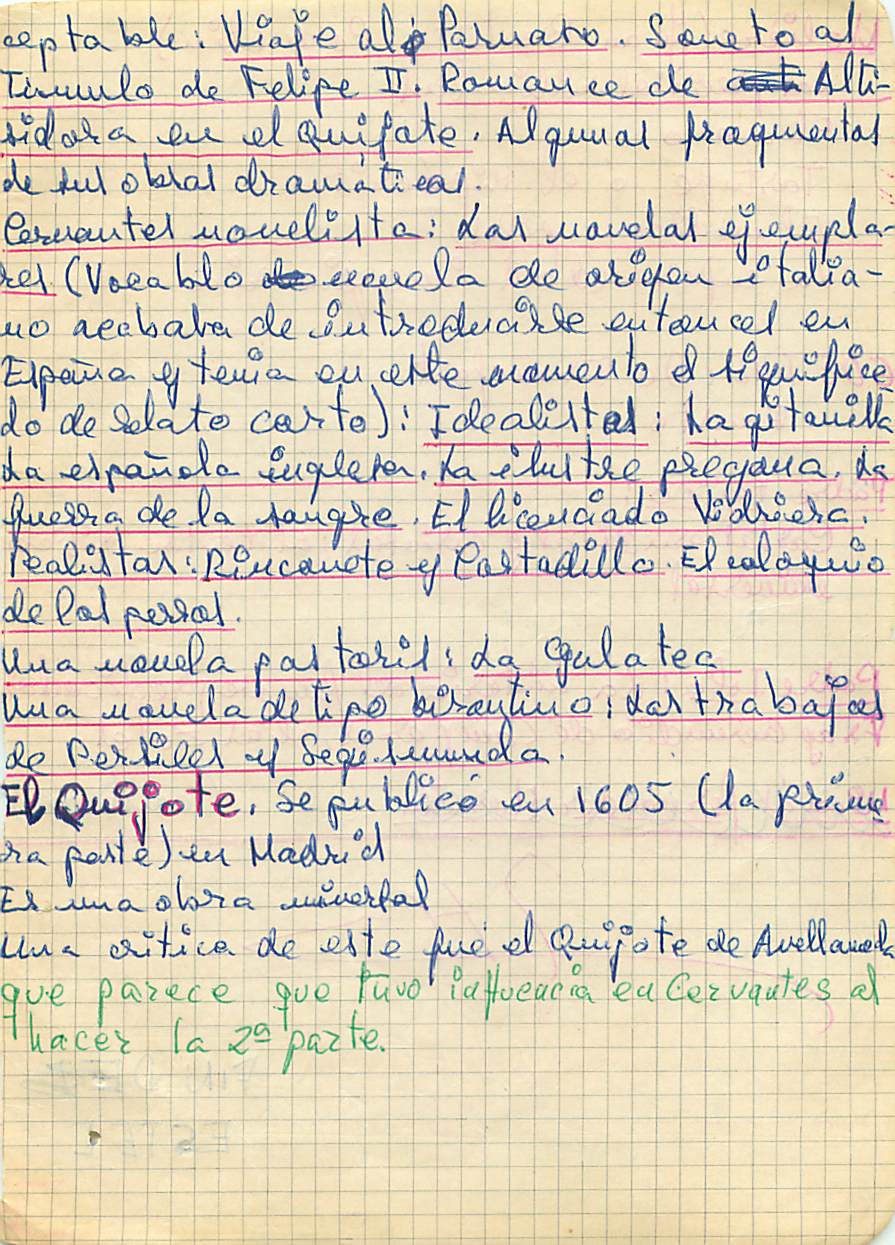 ceptable: Viaje al Parnaro. Soneto al
Túmulo de Felipe II. Romance de Alti-
sidora en el Quijote. Algunas fragmentos
de sus obras dramáticas.
Cervantes novelista: Las novelas ejempla-
res (Vocablo novela de origen italia-
no acababa de introducirse entonces en
España y tenia en este momento el significa
do de relato corto): Idealistas: La gitanilla
La española inglesa. La ilustre fregona. La
fuerza de la sangre. El licenciado Vidriera.
Realistas: Rinconete y Cortadillo. El coloquio
de los perros.
Una novela pastoril: La Galatea
Una novela de tipo bizantino: Los trabajos
de Persiles y Segismunda.
El Quijote. Se publicó en 1605 (la prime
ra parte) en Madrid
Es una obra universal
Una critica de este fué el Quijote de Avellaneda
que parece que tuvo influencia en Cervantes al
hacer la 2ª parte.